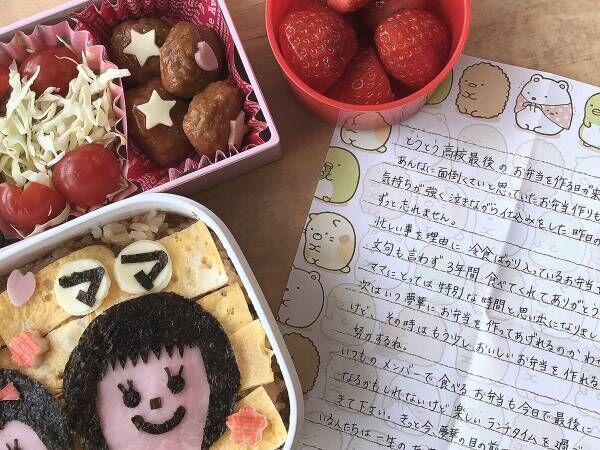 ママ
とうとう高校最後のお弁当を作る日が来
あんなに面倒くさいと思っていたお弁当作りも
気持ちが強く泣きながら仕込みをした昨日の
ずっと忘れません。
忙しい事を理由に 冷食ばかり入っているお弁当
文句も言わず 3年間 食べてくれてありがとう
ママにとっては特別な時間と思い出になりまし
次はいつ夢華にお弁当を作ってあげれるのかわ
けど、その時はもう少しおいしいお弁当を作れる
努力するね。
いつものメンバーで食べる お弁当も今日で最後に
なるかもしれないけど楽しいランチタイムを過ご
きて下さい。きっと今、夢華の目の前
いる人たちは一生の